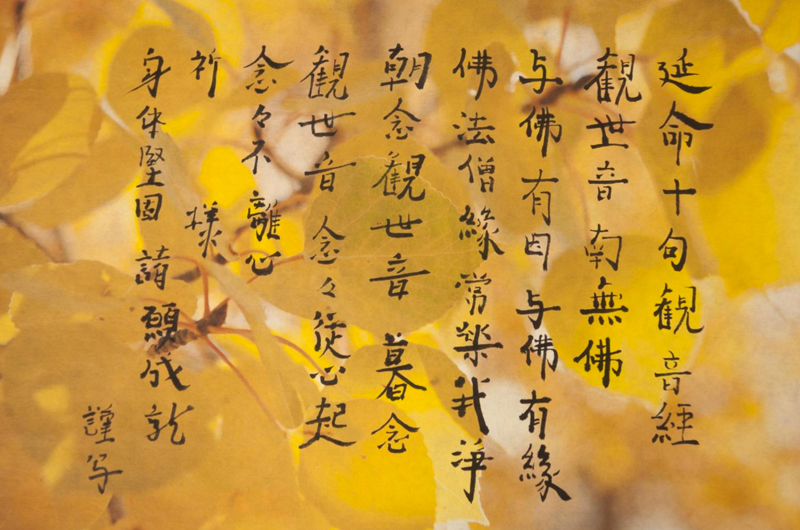 延命十句観音経
観世音南無佛
与佛有因与佛有縁
佛法僧縁常楽我浄
朝念観世音暮念
観世音念々従心起
念々不離心
祈 様
身体堅固 諸願成就
謹写